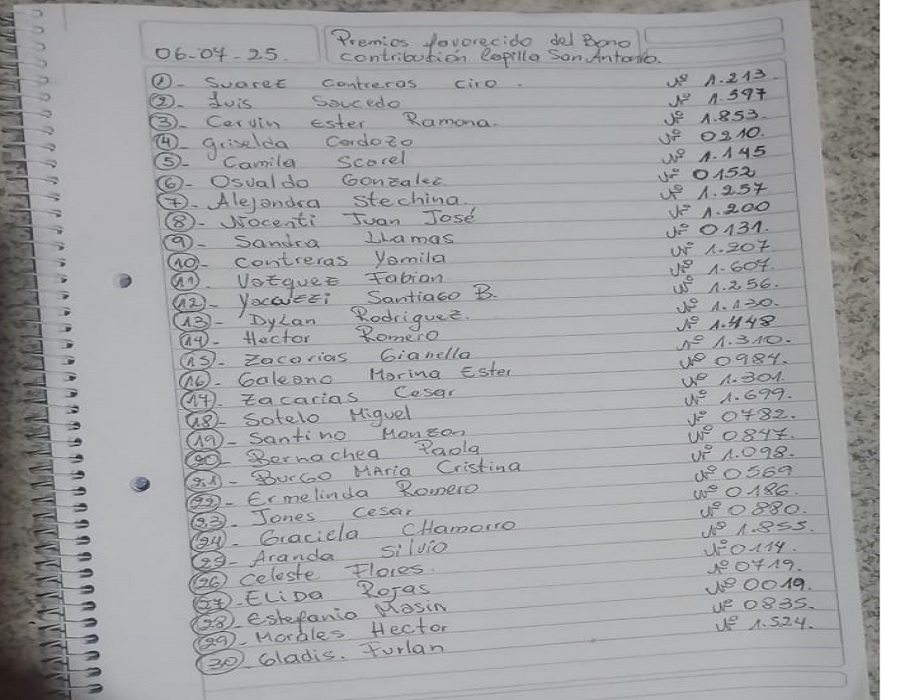 06-07-25. Premios favorecido del Bono
contribución Capilla San Antonio.
1- Suarez Contreras Ciro. Nº 1.213
2- Luis Saucedo Nº 1.597
3- Cervin Ester Ramona. Nº 1.853.
4- Griselda Cardozo Nº 0210.
5- Camila Scorel Nº 1.145
6- Osvaldo Gonzalez. Nº 0152
7- Alejandra Stechina. Nº 1.257
8- Nocenti Juan José Nº 1.200
9- Sandra Llamas Nº 0131.
10- Contreras Yamila Nº 1.207
11- Vazquez Fabian. Nº 1.607.
12- Yacuzzi Santiago B. Nº 1.256.
13- Dylan Rodriguez. Nº 1.130.
14- Hector Romero Nº 1.448
15- Zacarias Gianella Nº 1.310.
16- Galeano Marina Ester Nº 0984.
17- Zacarias Cesar Nº 1.301.
18- Sotelo Miguel Nº 1.699.
19- Santino Monzon Nº 0782.
20- Bernachea Paola Nº 0847.
21- Burgo Maria Cristina Nº 1.098.
22- Ermelinda Romero Nº 0569
23- Jones Cesar Nº 0186.
24- Graciela CHamorro Nº 0880.
25- Aranda Silvio Nº 1.855.
26 Celeste Flores. Nº 0114.
27- ELiDa Rojas Nº 0719.
28- Estefania Masin Nº 0019.
29- Morales Hector Nº 0835.
30- Gladis. Furlan Nº 1.524.